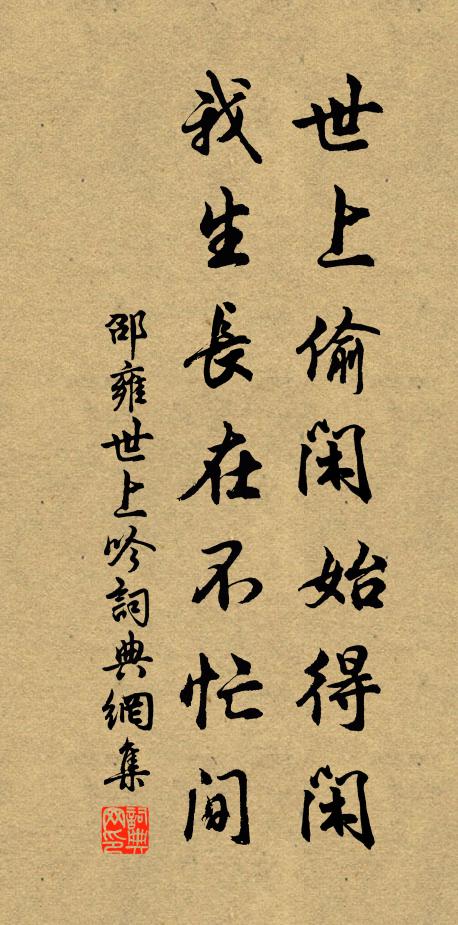 世上偷閑始得閑
我生長在不忙间
邵雍世上吟詞典網集
詞典网印